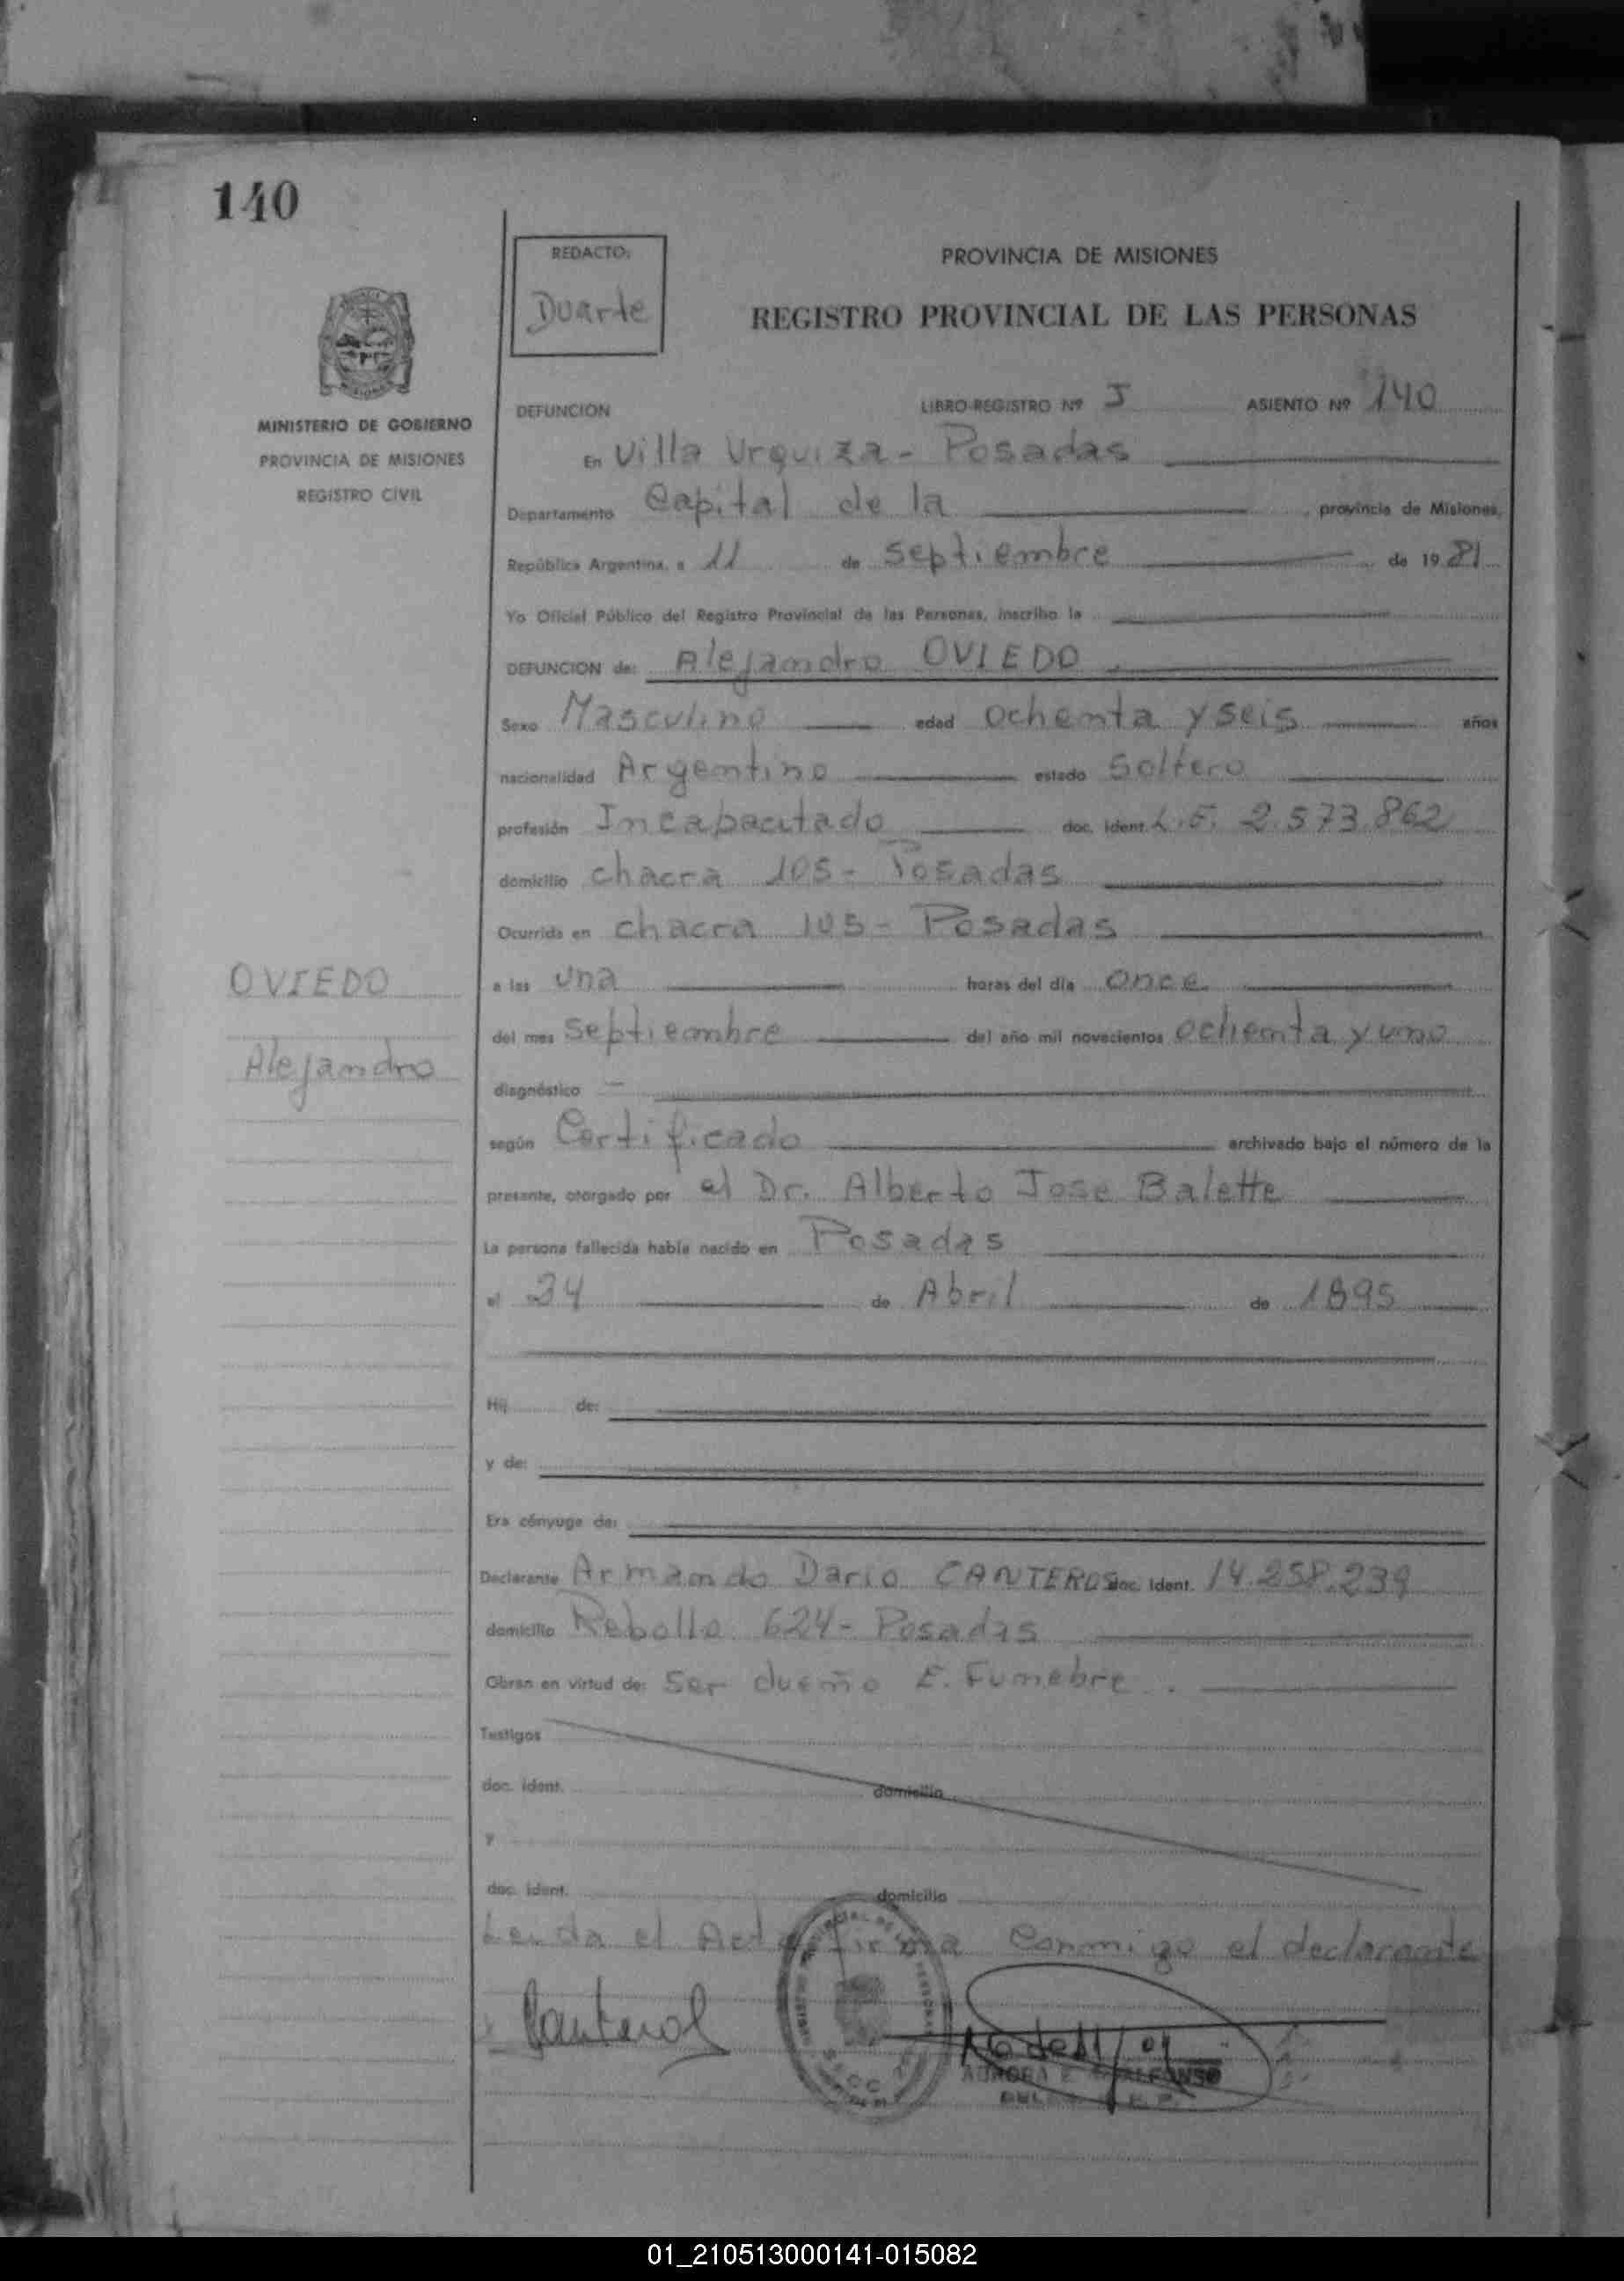 140
REDACTO:
Duarte
PROVINCIA DE MISIONES
REGISTRO PROVINCIAL DE LAS PERSONAS
MINISTERIO DE GOBIERNO
PROVINCIA DE MISIONES
REGISTRO CIVIL
DEFUNCION LIBRO-REGISTRO Nº J ASIENTO Nº 140
En Villa Urquiza - Posadas
Departamento Capital de la provincia de Misiones,
República Argentina, a 11 de septiembre de 1981
Yo Oficial Público del Registro Provincial de las Personas, inscribo la
DEFUNCION de: Alejandro OVIEDO
Sexo Masculino edad ochenta y seis años
nacionalidad Argentino estado Soltero
profesión Incapacitado doc. ident. L.E. 2.573.862
domicilio chacra 105 - Posadas
Ocurrida en chacra 105 - Posadas
OVIEDO
Alejandro
a las una horas del día once
del mes septiembre del año mil novecientos ochenta y uno
diagnóstico —
según Certificado archivado bajo el número de la
presente, otorgado por el Dr. Alberto Jose Balette
La persona fallecida había nacido en Posadas
el 24 de Abril de 1895
Hij de:
y de:
Era cónyuge de:
Declarante Armando Dario CANTEROS doc. ident. 14.258.239
domicilio Rebollo 624 - Posadas
Obran en virtud de: Ser dueño E. Funebre.
Testigos
doc. ident. domicilio
y
doc. ident. domicilio
Leida el Acta firma conmigo el declarante
Canteros
AURORA E. ALFONSO
01_210513000141-015082